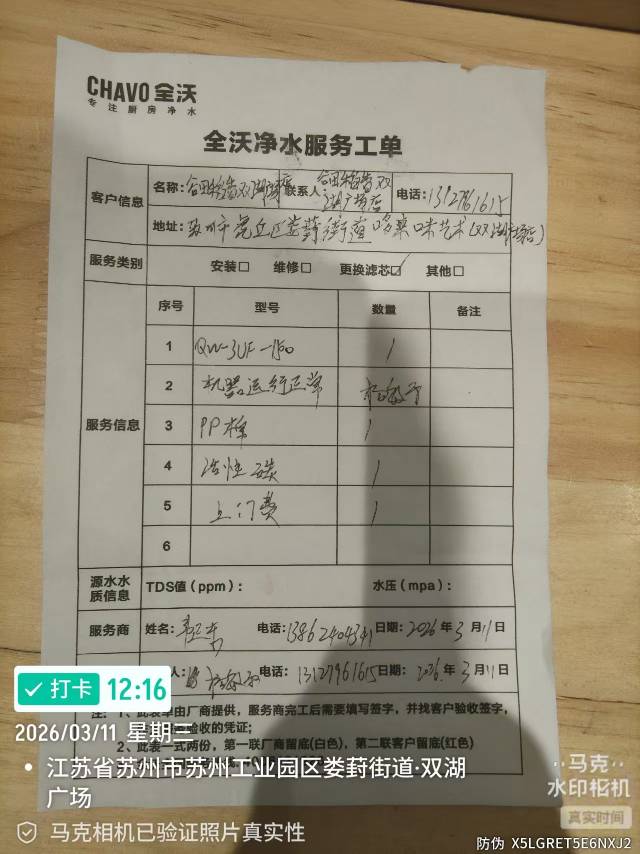 CHAVO 全沃
专注厨房净水
全沃净水服务工单
客户信息 名称：合田稻香双湖 联系人：合田稻香双湖广场店 电话：13127961615
地址：苏州市虎丘区娄葑街道哆来咪艺术(双湖广场店)
服务类别 安装□ 维修□ 更换滤芯☑ 其他□
服务信息 序号 型号 数量 备注
1 QW-3UF-150 1
2 机器运行正常
3 PP棉 1
4 活性碳 1
5 上门费 1
6
源水水质信息 TDS值（ppm）： 水压（mpa）：
服务商 姓名： 电话：13862404341 日期：2026年3月11日
人： 电话：13127961615 日期：2026年3月11日
注：1、此表单由厂商提供，服务商完工后需要填写签字，并找客户验收签字，
验收的凭证；
2、此表一式两份，第一联厂商留底(白色)，第二联客户留底(红色)
打卡 12:16
2026/03/11 星期三
江苏省苏州市苏州工业园区娄葑街道·双湖
广场
马克相机已验证照片真实性
马克
水印相机
真实时间
防伪 X5LGRET5E6NXJ2